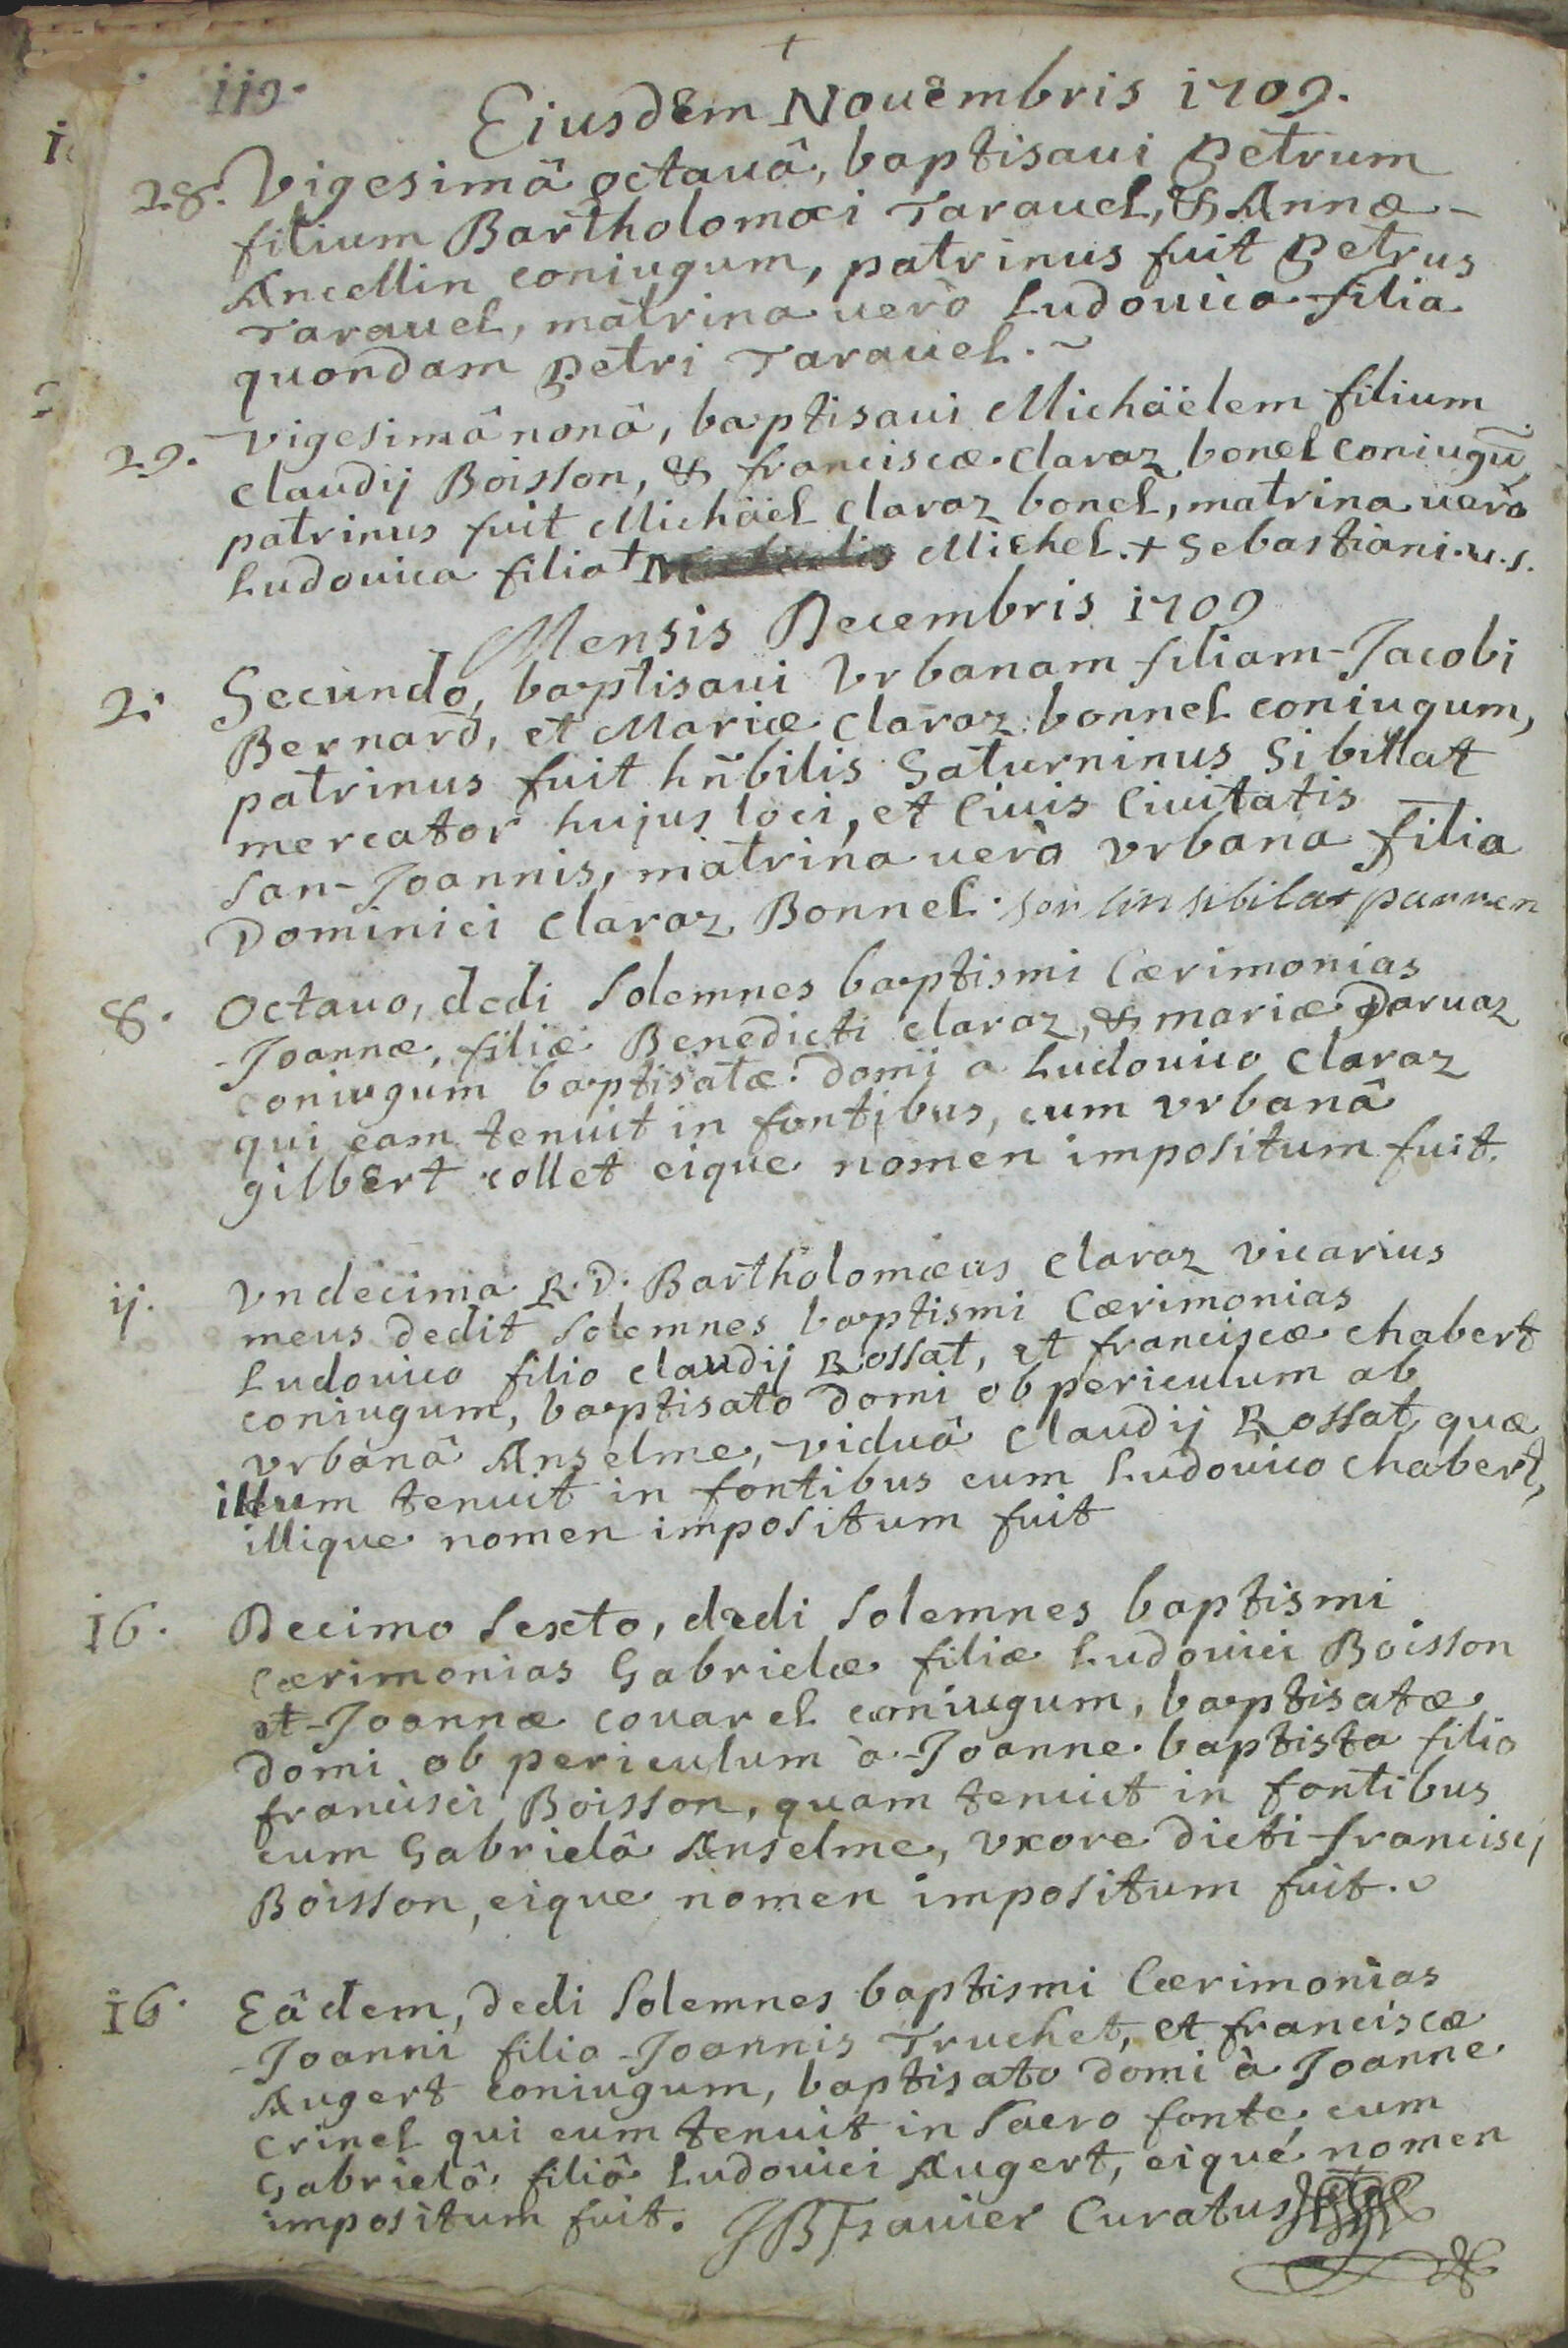 119.
Eiusdem Nouembris 1709.
28. Vigesimâ octauâ, baptisaui Petrum
filium Bartholomœi Tarauel, & Annæ
Ancellin coniugum, patrinus fuit Petrus
Tarauel, matrina uerò Ludouica filia
quondam Petri Tarauel.
29. Vigesimâ nonâ, baptisaui Michäelem filium
Claudij Boisson, & franciscæ claraz bonel coniugũ,
patrinus fuit Michäel Claraz bonel, matrina uerò
Ludouica filia + Michel. + Sebastiani. u. s.
Mensis Decembris 1709
2. Secundo, baptisaui Vrbanam filiam Jacobi
Bernard, et Mariæ Claraz bonnel coniugum,
patrinus fuit hñbilis Saturninus Sibillat
mercator hujus loci, et Ciuis Ciuitatis
San-Joannis, matrina uerò Vrbana filia
Dominici Claraz Bonnel. sibilat
8. Octauo, dedi Solemnes baptismi Cærimonias
Joannæ, filiæ Benedicti claraz, & mariæ Daruaz
coniugum baptisatæ domi a Ludouico Claraz
qui eam tenuit in fontibus, cum vrbanâ
gilbert collet eique nomen impositum fuit.
ij. Vndecima R. D. Bartholomæus Claraz vicarius
meus dedit Solemnes baptismi Cærimonias
Ludouico filio claudij Rossat, et franciscæ chabert
coniugum, baptisato domi ob periculum ab
vrbanâ Anselme, viduâ Claudij Rossat quæ
illum tenuit in fontibus cum Ludouico chabert,
illique nomen impositum fuit
16. Decimo Sexto, dedi Solemnes baptismi
Cærimonias Gabrielæ filiæ Ludouici Boisson
et Joannæ couarel coniugum, baptisatæ
domi ob periculum à Joanne baptista filio
francisci Boisson, quam tenuit in fontibus
cum Gabrielâ Anselme, vxore dicti francisci
Boisson, eique nomen impositum fuit.
16. Eâdem, dedi Solemnes baptismi Cærimonias
Joanni filio Joannis Truchet, et franciscæ
Augert coniugum, baptisato domi à Joanne
Crinel qui eum tenuit in Sacro fonte cum
Gabrielâ filiâ Ludouici Augert, eique nomen
impositum fuit. Curatus